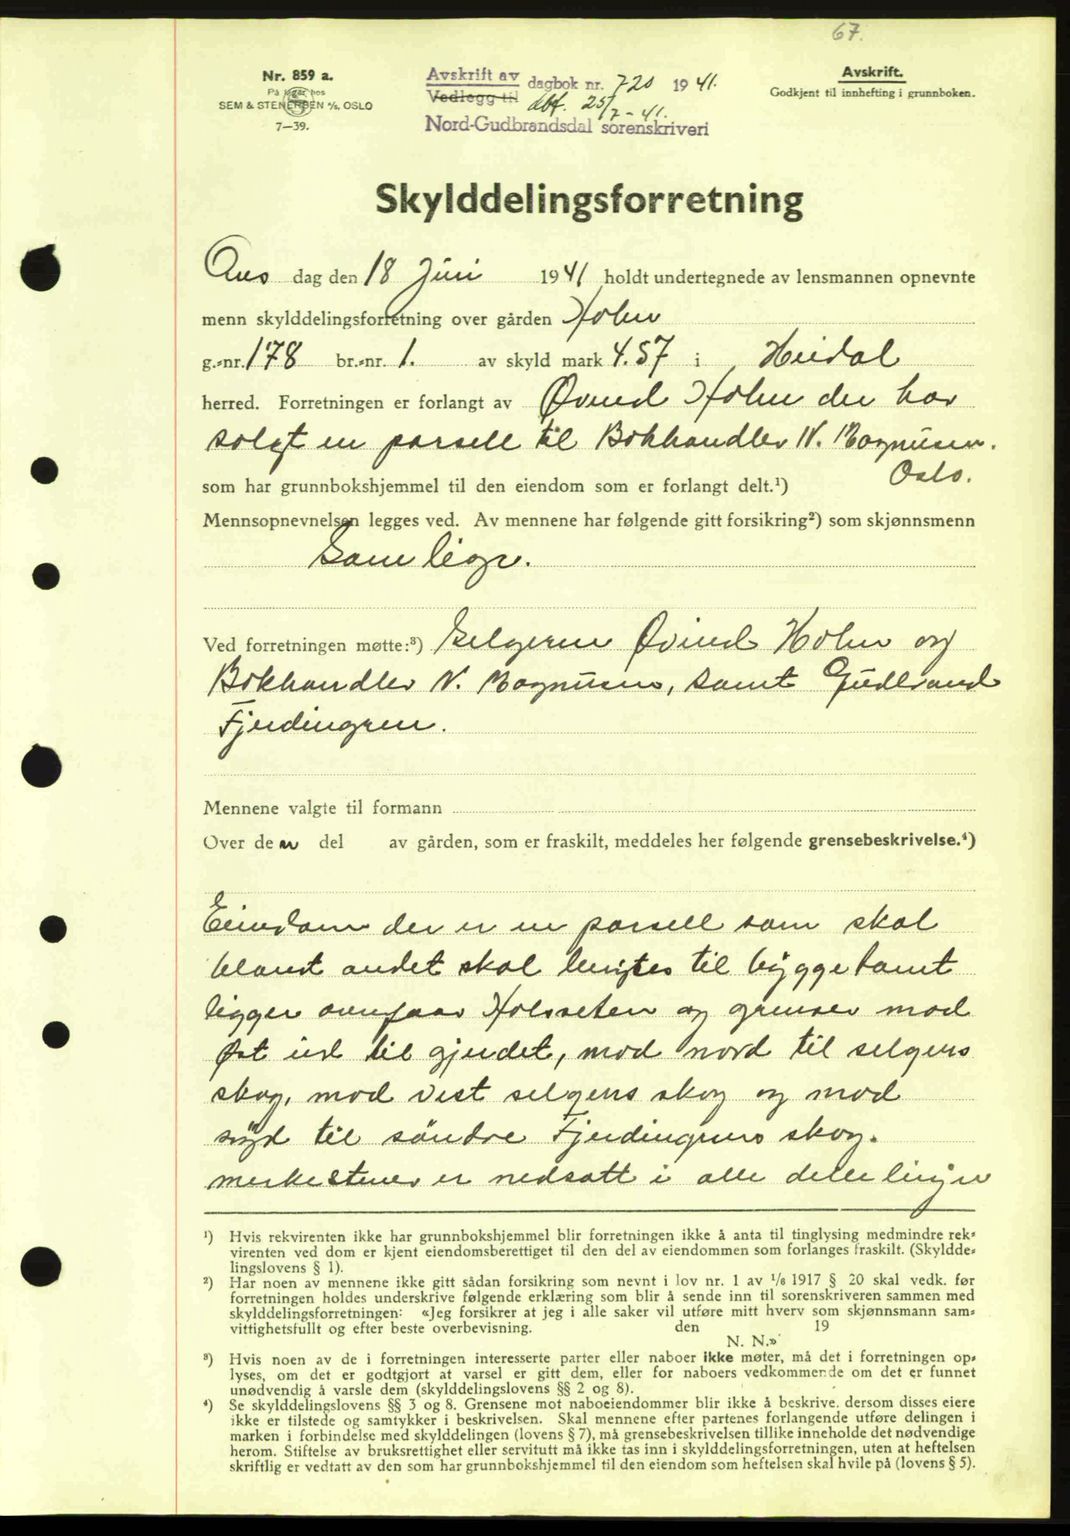 67.
Nr. 859 a.
På lager hos
SEM & STENERSEN A/S, OSLO
7—39.
Avskrift av
Vedlegg til
dagbok nr. 720 1941.
dbf. 25/7 - 41.
Nord-Gudbrandsdal sorenskriveri
Avskrift.
Godkjent til innhefting i grunnboken.
Skylddelingsforretning
Ons dag den 18 Juni 1941 holdt undertegnede av lensmannen opnevnte
menn skylddelingsforretning over gården Holen
g.-nr. 178 br.-nr. 1. av skyld mark 4.57 i Heidal
herred. Forretningen er forlangt av Øvind Holen der har
solgt en parsell til Bokhandler N. Magnusen.
Oslo.
som har grunnbokshjemmel til den eiendom som er forlangt delt.¹)
Mennsopnevnelsen legges ved. Av mennene har følgende gitt forsikring²) som skjønnsmenn
Samlige.
Ved forretningen møtte:³) Selgeren Øvind Holen og
Bokhandler N. Magnusen, samt Gudbrand
Fjerdingren.
Mennene valgte til formann
Over den del av gården, som er fraskilt, meddeles her følgende grensebeskrivelse.⁴)
Eiendom der er en parsell som skal
blant andet skal benyttes til byggetomt
ligger ovenfaar Holsseten og grenser mod
Øst ud til gjerdet, mod nord til selgers
skog, mod vest selgers skog og mod
syd til søndre Fjerdingrens skog.
merkestener er nedsatt i alle dele linjer
¹) Hvis rekvirenten ikke har grunnbokshjemmel blir forretningen ikke å anta til tinglysing medmindre rek-
virenten ved dom er kjent eiendomsberettiget til den del av eiendommen som forlanges fraskilt. (Skyldde-
lingslovens § 1).
²) Har noen av mennene ikke gitt sådan forsikring som nevnt i lov nr. 1 av 1/6 1917 § 20 skal vedk. før
forretningen holdes underskrive følgende erklæring som blir å sende inn til sorenskriveren sammen med
skylddelingsforretningen: «Jeg forsikrer at jeg i alle saker vil utføre mitt hverv som skjønnsmann sam-
vittighetsfullt og efter beste overbevisning. den 19
N. N.»
³) Hvis noen av de i forretningen interesserte parter eller naboer ikke møter, må det i forretningen op-
lyses, om det er godtgjort at varsel er gitt dem, eller for naboers vedkommende om det er funnet
unødvendig å varsle dem (skylddelingslovens §§ 2 og 8).
⁴) Se skylddelingslovens §§ 3 og 8. Grensene mot naboeiendommer blir ikke å beskrive. dersom disses eiere
ikke er tilstede og samtykker i beskrivelsen. Skal mennene efter partenes forlangende utføre delingen i
marken i forbindelse med skylddelingen (lovens § 7), må grensebeskrivelsen tillike inneholde det nødvendige
herom. Stiftelse av bruksrettighet eller servitutt må ikke tas inn i skylddelingsforretningen, uten at heftelsen
skriftlig er vedtatt av den som har grunnbokshjemmel til den eiendom som heftelsen skal hvile på (lovens § 5).